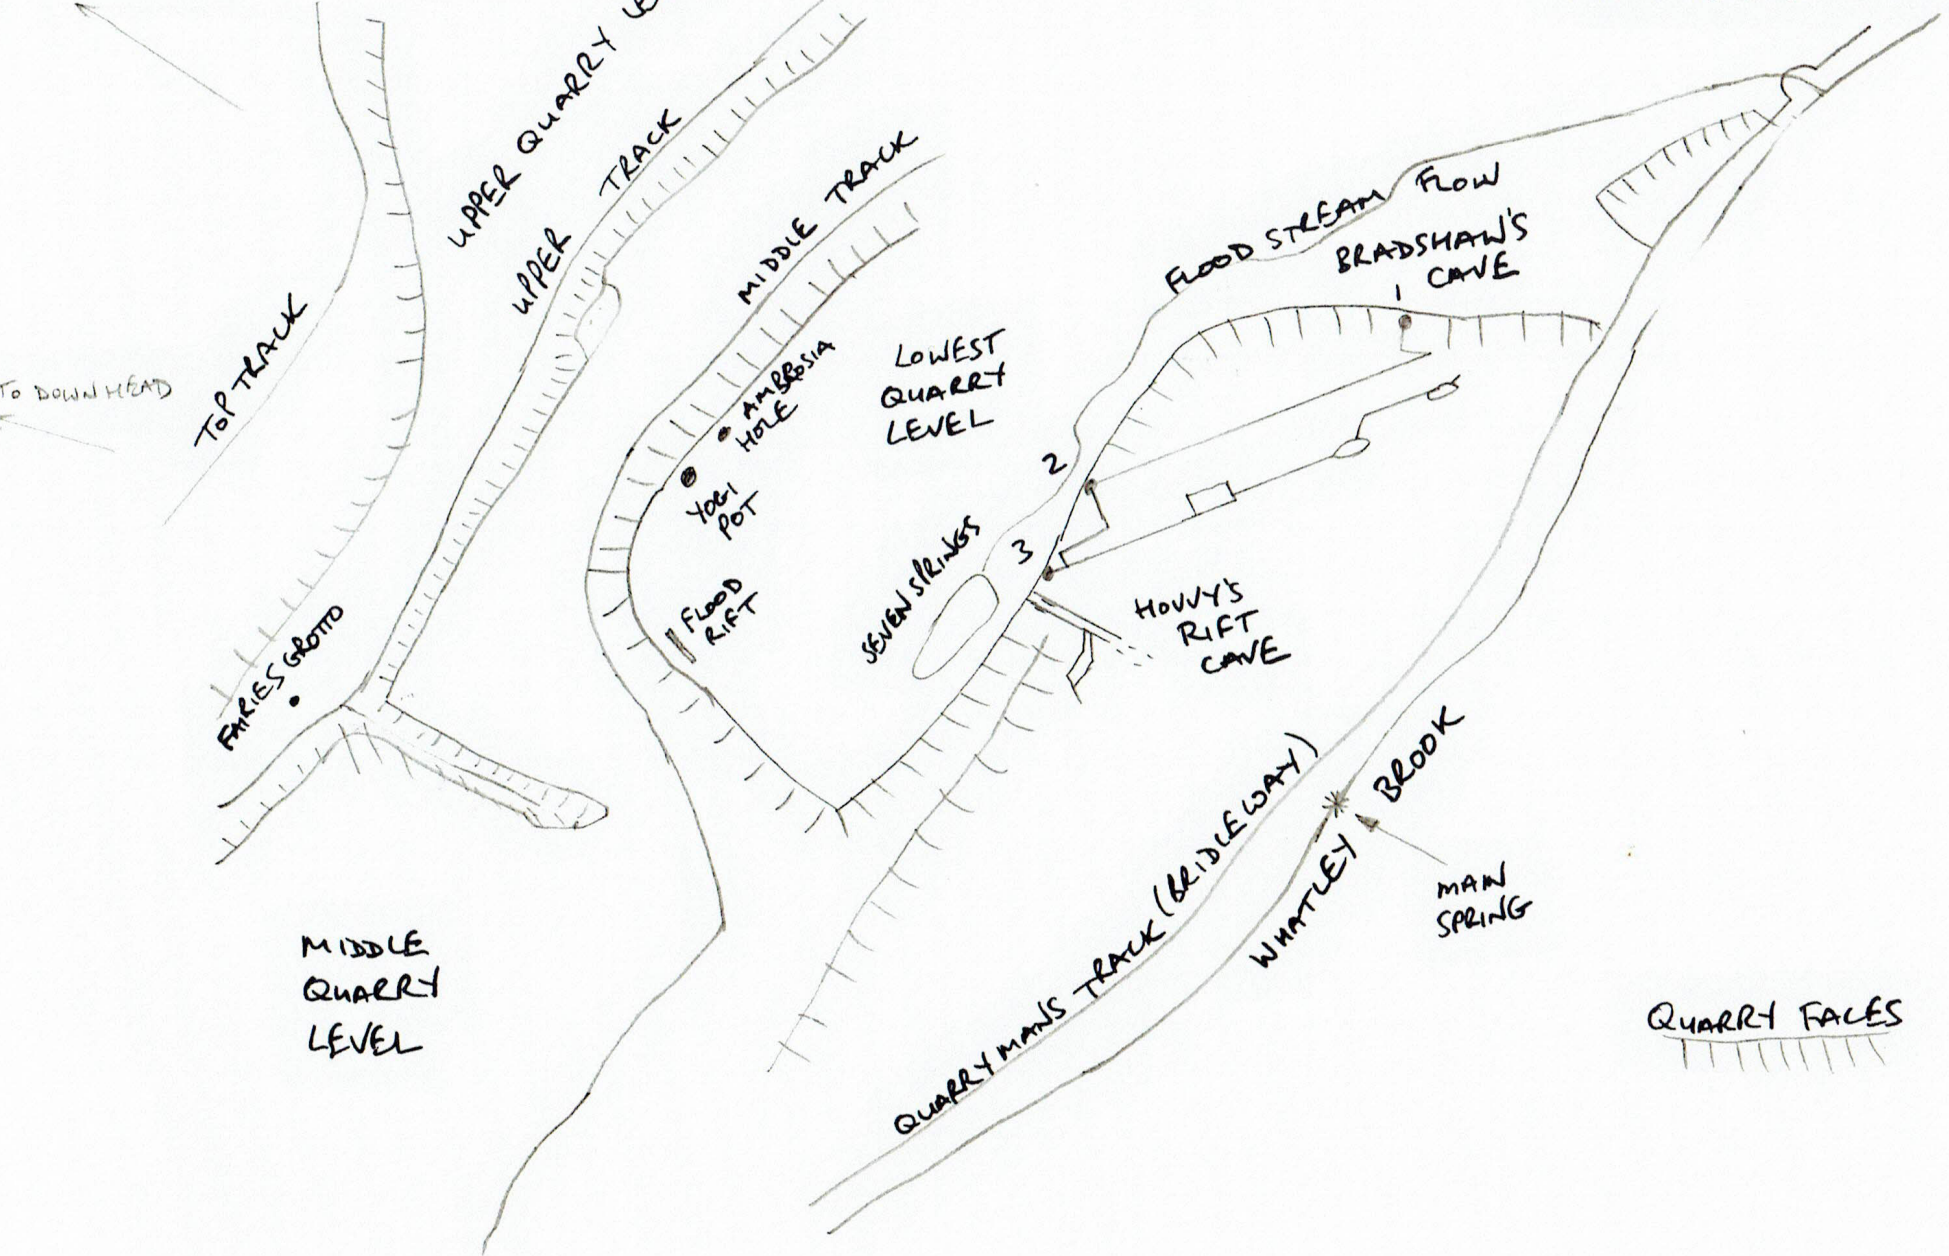 UPPER QUARRY
UPPER TRACK
MIDDLE TRACK
TOP TRACK
TO DOWNHEAD
FLOOD STREAM FLOW
BRADSHAW'S
CAVE
1
LOWEST
QUARRY
LEVEL
AMBROSIA
HOLE
YOGI
POT
2
3
SEVEN SPRINGS
FLOOD
RIFT
HOVVY'S
RIFT
CAVE
FAIRIES GROTTO
MIDDLE
QUARRY
LEVEL
QUARRY MANS TRACK (BRIDLEWAY)
WHATLEY BROOK
MAIN
SPRING
QUARRY FACES